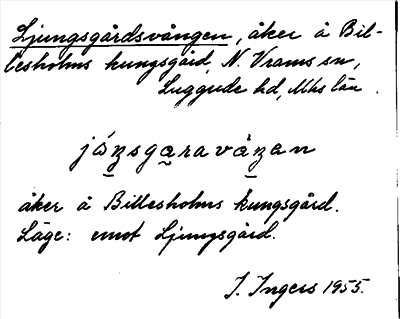 Ljungsgårdsvången, åker å Bil-
lesholms kungsgård, N. Vrams sn,
Luggude hd, Mhs län.
jåŋsgaravåŋan
åker å Billesholms kungsgård.
Läge: emot Ljungsgård.
I. Ingers 1955.